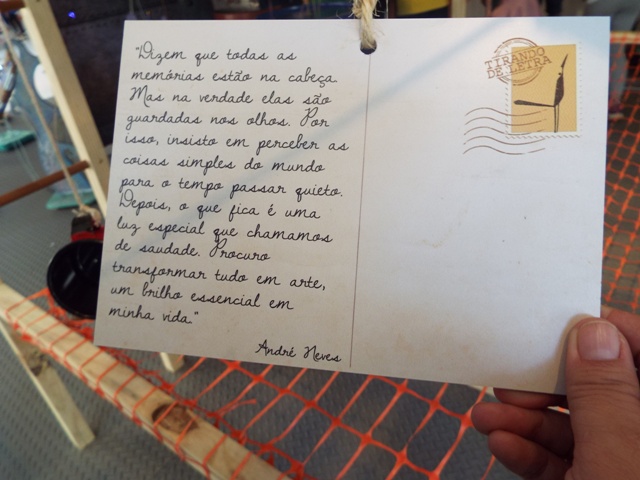 "Dizem que todas as
memórias estão na cabeça.
Mas na verdade elas são
guardadas nos olhos. Por
isso, insisto em perceber as
coisas simples do mundo
para o tempo passar quieto.
Depois, o que fica é uma
luz especial que chamamos
de saudade. Procuro
transformar tudo em arte,
um brilho essencial em
minha vida."
André Neves
TIRANDO
DE LETRA